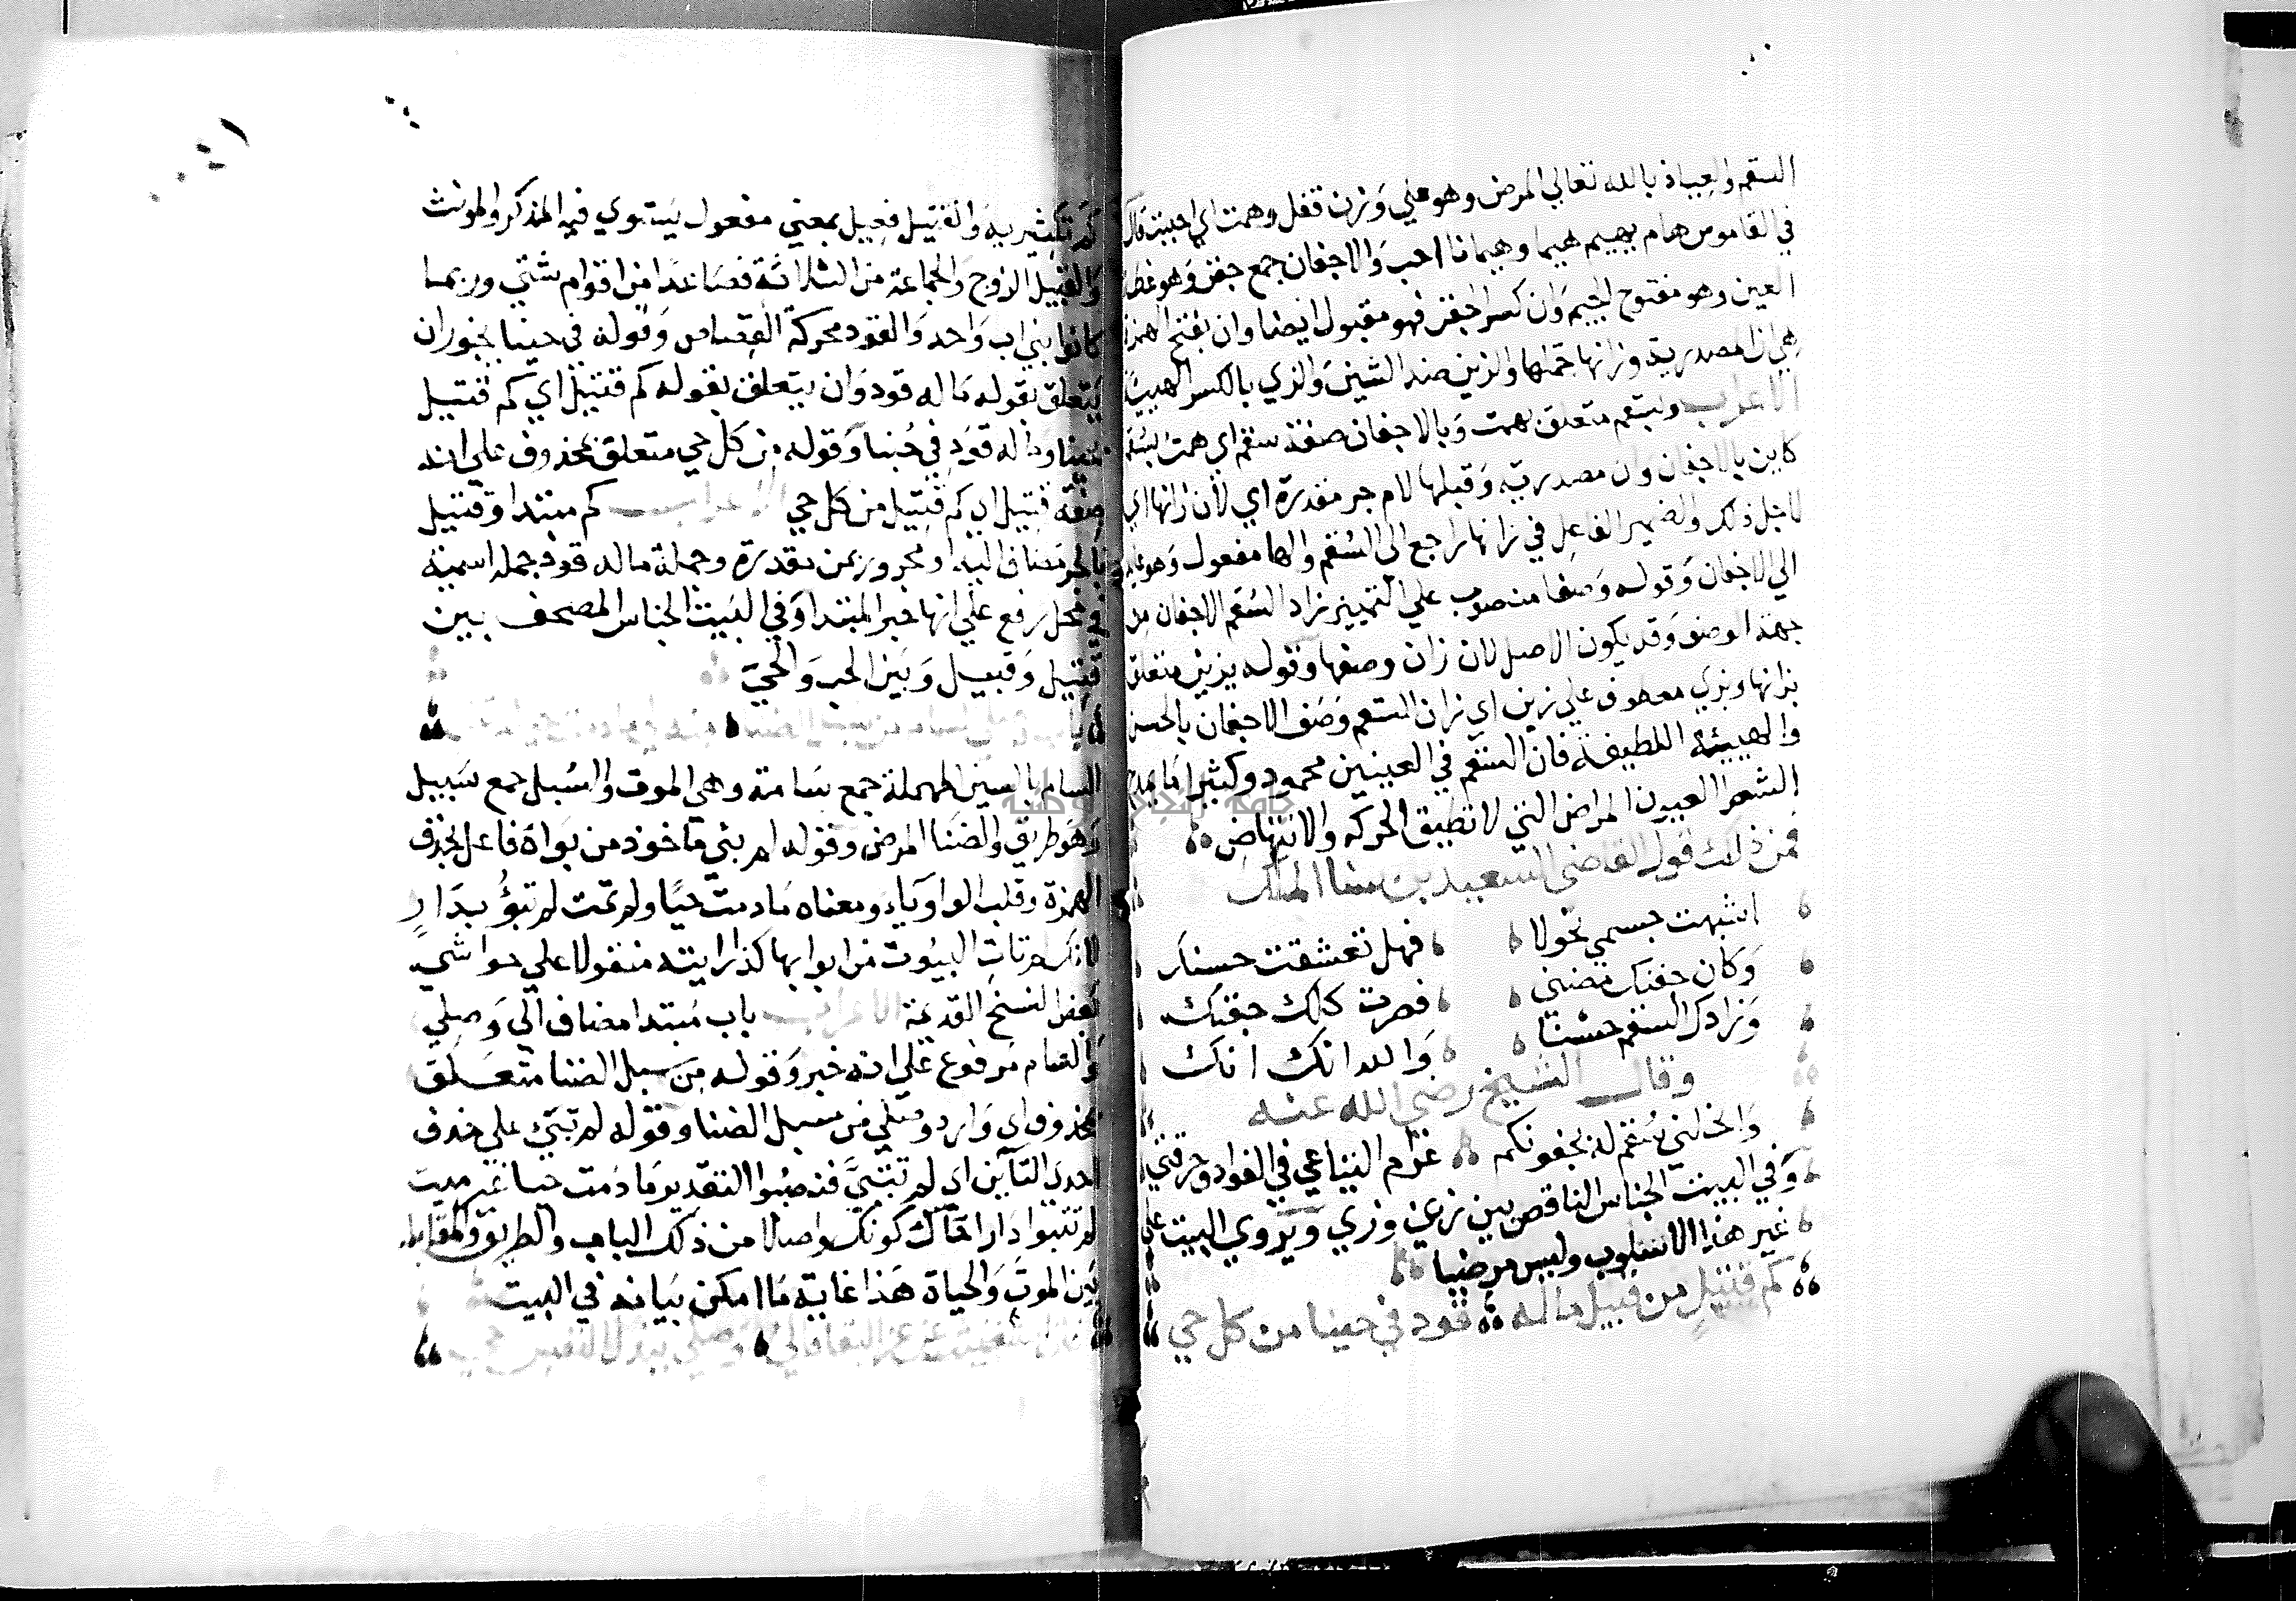 السقم والعياذ بالله تعالي المرض وهو علي وزن قفل وهمت اي احببت قال
في القاموس هام يهيم هيما وهيمانا احب والاجفان جمع جفن وهو غطا
العين وهو مفتوح الجيم وان كسر الجفن فهو مقبول ايضا وان بفتح الهمزة
هي ان المصدرية وزانها جملها والزين ضد الشين والزي بالكسر الهيئة
الاعراب وبسقم متعلق بهمت وبالاجفان صفة سقم اي همت بسقم
كاين بالاجفان وان مصدرية وقبلها لام جر مقدرة اي لأن زانها اي
لاجل ذلك والضمير الفاعل في زانها راجع الى السقم والها مفعول وهو عايد
الي الاجفان وقوله وصفا منصوب علي التمييز زاد السقم الاجفان من
جهة الوصف وقد يكون الاصل لان زان وصفها وقوله بزين متعلق
بزانها وبزي معطوف علي زين اي زان السقم وصف الاجفان بالحسن
والهيئة اللطيفة فان السقم في العينين محمود وكثيرا ما يمدح
الشعرا العيون المراض التي لا تطيق الحركة والانتهاض
فمن ذلك قول القاضي السعيد بن سنا الملك
اشبهت جسمي نحولا فهل تعشقت حسنك
وكان جفنك مضني فصرت كلك جفنك
وزادك السقم حسنا والله انك انك
وقال الشيخ رضي الله عنه
وانحلني سقم له بجفونكم غرام التياعي في الفواد وحرقتي
وفي البيت الجناس الناقص بين زين وزي ويروي البيت علي
غير هذا الاسلوب وليس مرضيا
كم قتيل من قبيل ما له قود في حبنا من كل حي
كم تكثيرية والقتيل فعيل بمعني مفعول يستوي فيه المذكر والمونث
والقبيل الزوج والجماعة من الثلاثة فصاعدا من اقوام شتي وربما
كانوا بني اب واحد والقود محركة القصاص وقوله في حبنا يجوز ان
يتعلق بقوله ما له قود وان يتعلق بقوله كم قتيل اي كم قتيل
وما له قود في حبنا وقوله من كل حي متعلق بمحذوف علي انه
صفة قتيل اي كم قتيل من كل حي الاعراب كم مبتدا وقتيل
بالجر مضاف اليه او مجرور بمن مقدرة وجملة ما له قود جملة اسمية
في محل رفع علي انها خبر المبتدا وفي البيت الجناس المصحف بين
قتيل وقبيل وبين الحب والحي
السام بالسين المهملة جمع سامة وهي الموت والسبل جمع سبيل
وهو طريق والضنا المرض وقوله لم تبي ماخوذ من بواه فاعل بحذف
الهمزة وقلب الواو ياء ومعناه ما دمت حيا ولم تمت لم تبؤ بدار
لانك لم تات البيوت من ابوابها كذا رايته منقولا علي حواشي
بعض النسخ القديمة الاعراب باب مبتدا مضاف الي وصلي
والسام مرفوع علي انه خبر وقوله من سبل الضنا متعلق
بمحذوف اي وارد وصلي من سبل الضنا وقوله لم تبي علي حذف
احدي التآين اي لم تتبي فنصبوا التقدير ما دمت حيا غير ميت
لم تتبوا دارا لك كونك واصلا من ذلك الباب والطريق والمقابلة
بين الموت والحياة هذا غاية ما امكن بيانه في البيت